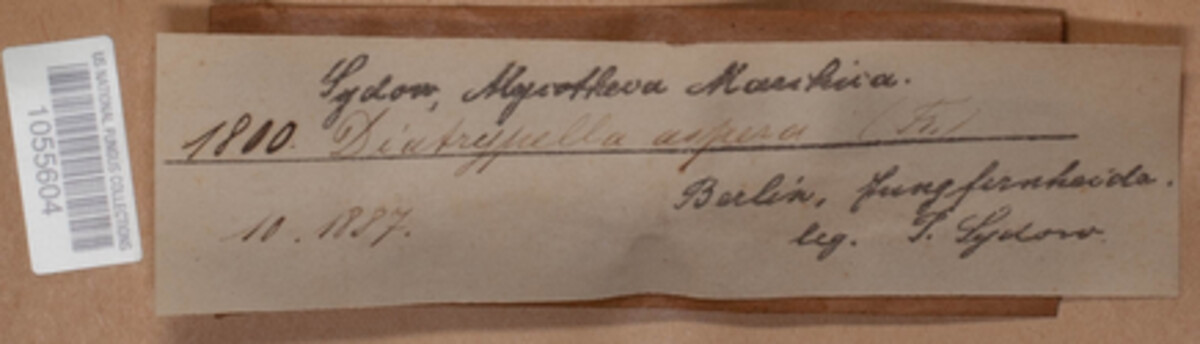 US NATIONAL FUNGUS COLLECTIONS
1055604
Sydow, Mycotheca Marchica.
1800. Diatrypella aspera (Fr.)
Berlin, Jungfernheide.
10. 1887.
leg. P. Sydow